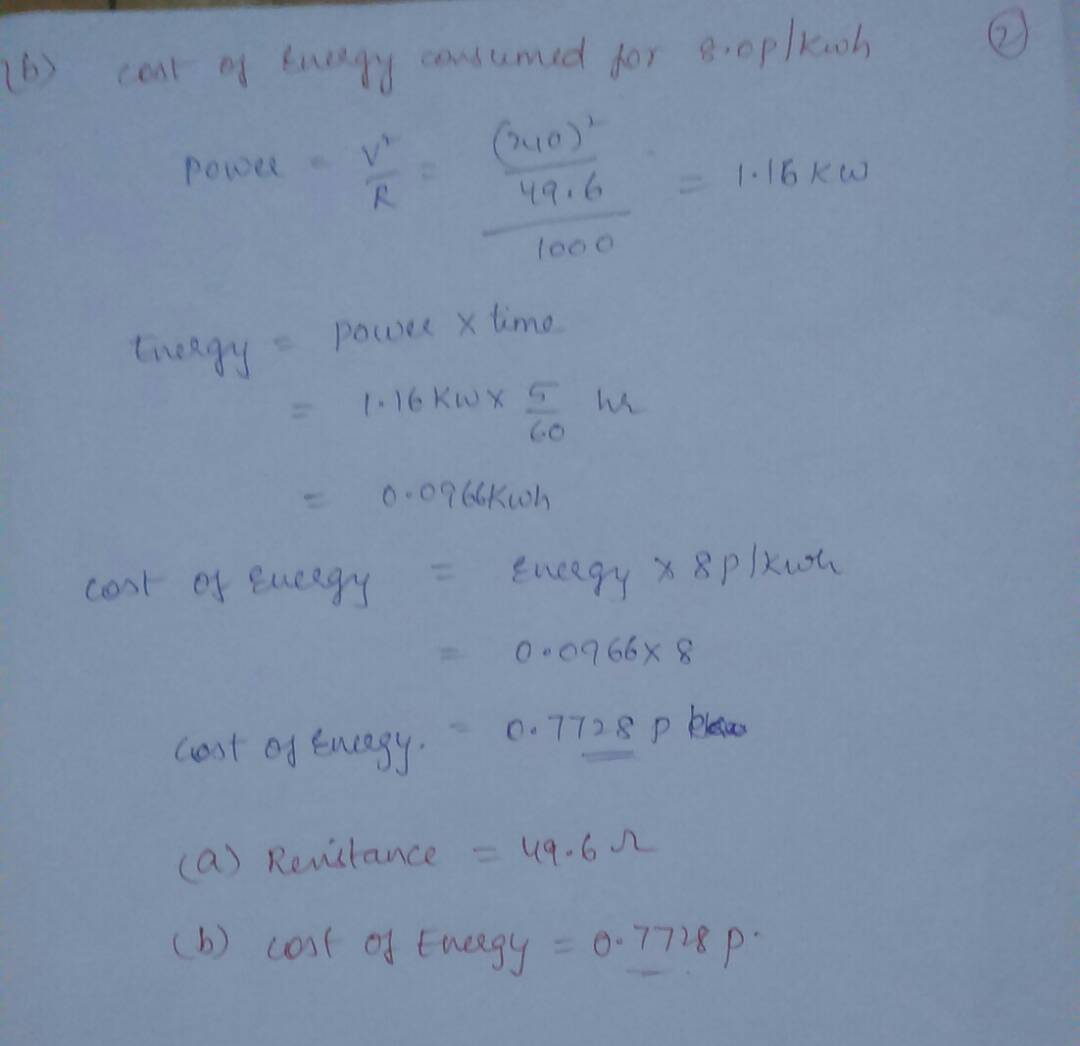 (b) cost of Energy consumed for 8.0p/kwh (2)
Power = V²/R = (240)²/49.6/1000 = 1.16 KW
Energy = Power x time
= 1.16 KW x 5/60 hr
= 0.0966Kwh
cost of Energy = Energy x 8P/kwh
= 0.0966 x 8
cost of Energy. = 0.7728 P
(a) Resistance = 49.6 Ω
(b) cost of Energy = 0.7728 p.